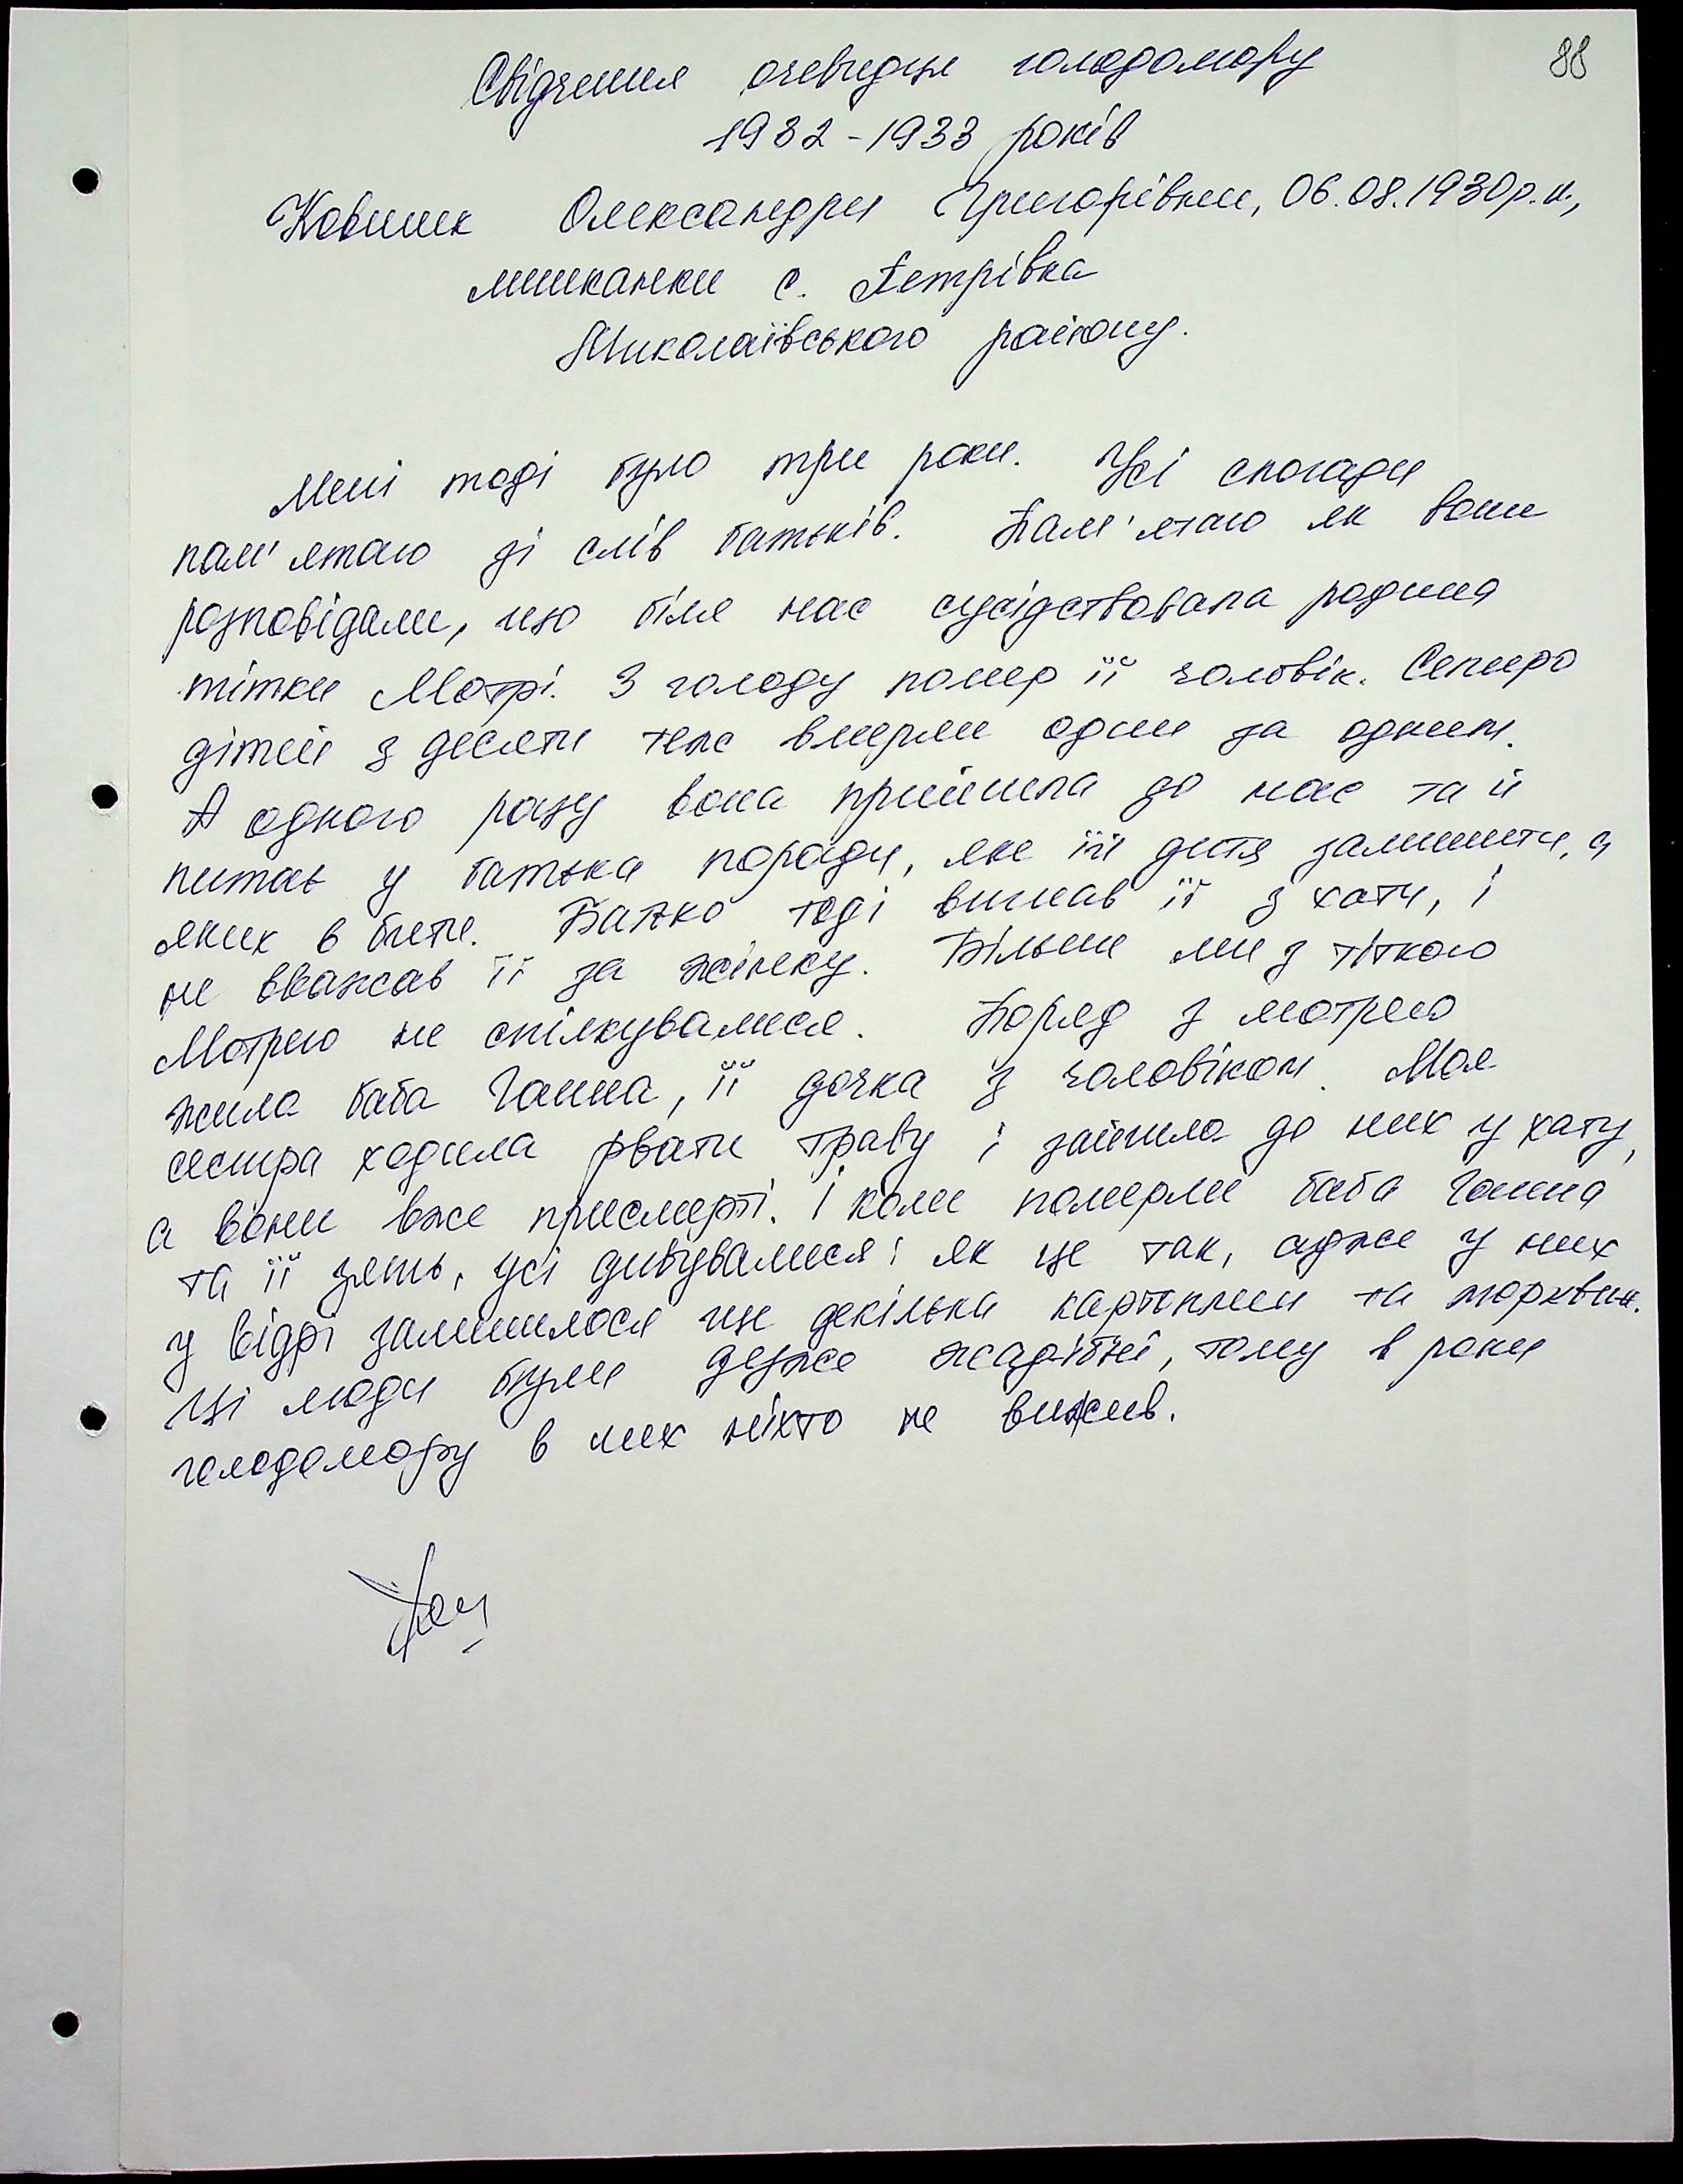 88
Свідчення очевидця голодомору
1932-1933 років
Ковшик Олександри Григорівни, 06.08.1930р.н.,
мешканки с. Петрівка
Миколаївського району.
Мені тоді було три роки. Усі спогади
пам'ятаю зі слів батьків. Пам'ятаю як вони
розповідали, що біля нас сусідствовала родина
тітки Мотрі. З голоду помер її чоловік. Семеро
дітей з десяти теж вмерли один за одним.
А одного разу вона прийшла до нас та й
питає у батька поради, яке їй дитя залишити, а
яких вбити. Батько тоді вигнав її з хати, і
не вважав її за жінку. Більше ми з тіткою
Мотрею не спілкувалися. Поряд з мотрею
жила баба Ганна, її дочка з чоловіком. Моя
сестра ходила рвати траву і зайшла до них у хату,
а вони вже присмерті. І коли померли баба Ганна
та її зять, усі дивувалися: як це так, адже у них
у відрі залишилося ще декілька картоплин та морквин.
Ці люди були дуже жадібні, тому в роки
голодомору в них ніхто не вижив.